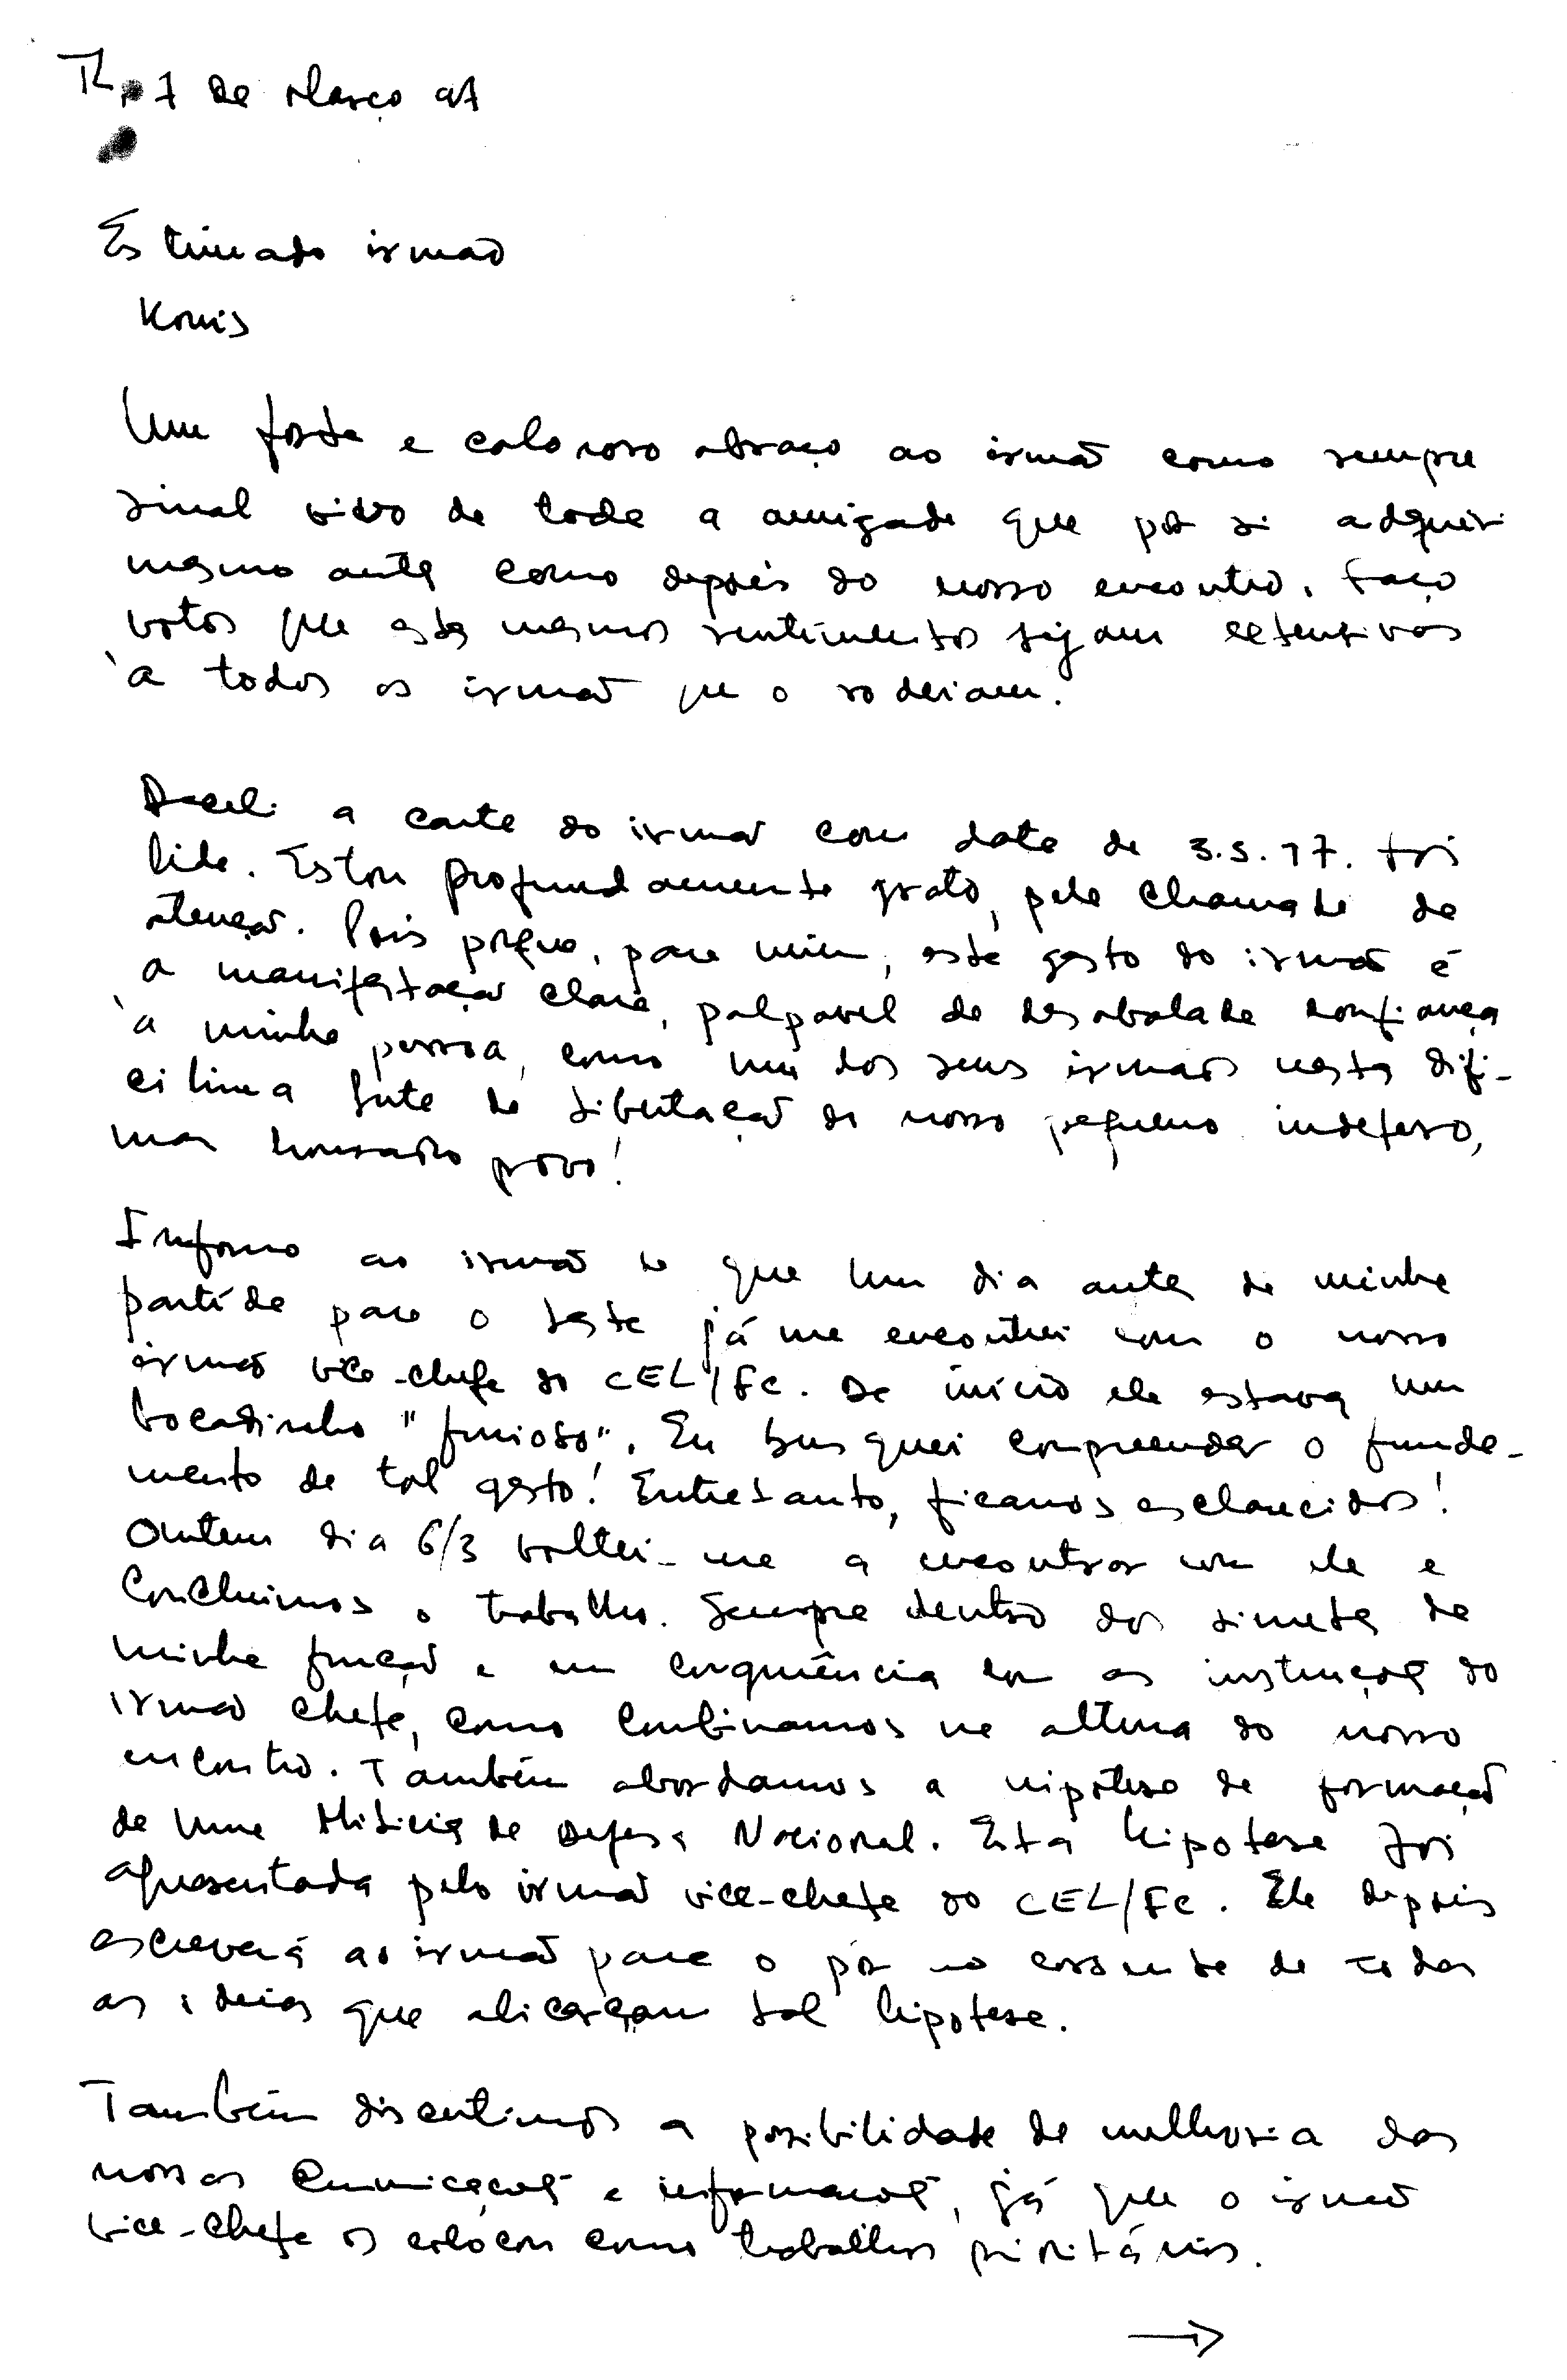 TL, 7 de Março 97
Estimado irmão
Konis
Um forte e caloroso abraço ao irmão como sempre
sinal vivo de toda a amizade que por si adquiri
mesmo antes como depois do nosso encontro. Faço
votos que estes mesmos sentimentos sejam extensivos
à todos os irmãos que o rodeiam.
Recebi a carta do irmão com data de 3.3.97. Foi
lida. Estou profundamente grato, pela chamada de
atenção. Pois porque, para mim, este gesto do irmão é
a manifestação clara, palpavel de desabalada confiança
à minha pessoa, como um dos seus irmãos nesta difi-
cilima luta de libertação do nosso pequeno indefeso,
mas honrado povo!
Informo ao irmão de que um dia antes de minha
partida para o teste já me encontrei com o nosso
irmão vice-chefe do CEL/FC. De início ele estava um
bocadinho "furioso". Eu busquei compreender o funda-
mento de tal gesto! Entretanto, ficamos esclarecidos!
Ontem dia 6/3 voltei-me a encontrar com ele e
concluimos o trabalho. Sempre dentro dos limites de
minha função e em conquência com as instruções do
irmão chefe, como combinamos na altura do nosso
encontro. Também abordamos a hipótese de formação
de uma Milicia de Defesa Nacional. Esta hipotese foi
apresentada pelo irmão vice-chefe do CEL/FC. Ele depois
escreverá ao irmão para o pôr ao corrente de todas
as ideias que alicerçam tal hipotese.
Também discutimos a possibilidade de melhoria das
nossas comunicações e informações, já que o irmão
vice-chefe os colocou como trabalhos prioritários.
→